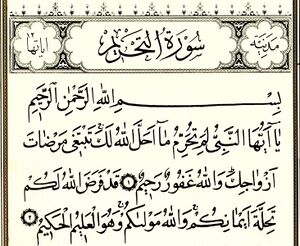 مدنية
سورة التحريم
اياتها
بِسْمِ اللهِ الرَّحْمٰنِ الرَّحِيمِ
يَا اَيُّهَا النَّبِيُّ لِمَ تُحَرِّمُ مَا اَحَلَّ اللهُ لَكَ تَبْتَغِي مَرْضَاتَ
اَزْوَاجِكَ وَاللهُ غَفُورٌ رَحِيمٌ ١ قَدْ فَرَضَ اللهُ لَكُمْ
تَحِلَّةَ اَيْمَانِكُمْ وَاللهُ مَوْلٰيكُمْ وَهُوَ الْعَلِيمُ الْحَكِيمُ ٢